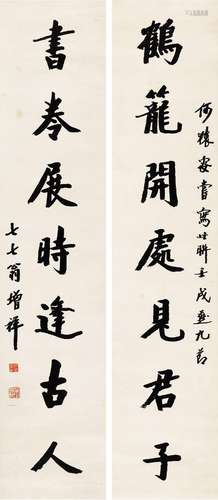 何猨叟嘗寫此聯壬戌重九節
鶴籠開處見君子
書卷展時逢古人
七七翁增祥